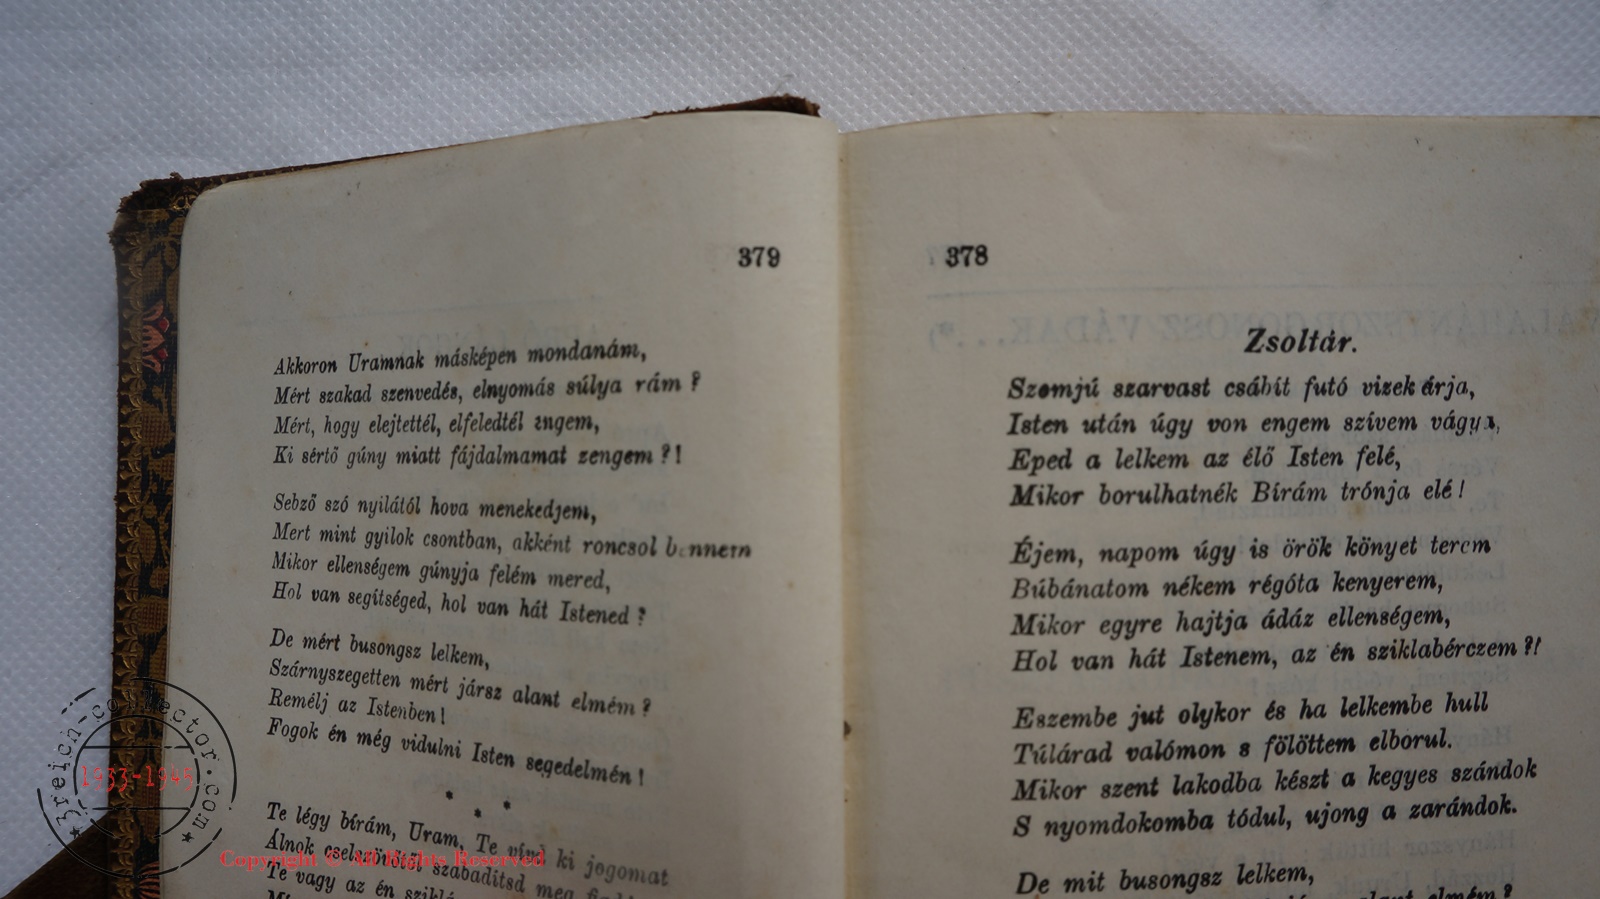 379
Akkoron Uramnak másképen mondanám,
Mért szakad szenvedés, elnyomás súlya rám ?
Mért, hogy elejtettél, elfeledtél engem,
Ki sértő gúny miatt fájdalmamat zengem ?!
Sebző szó nyilától hova menekedjem,
Mert mint gyilok csontban, akként roncsol bennem
Mikor ellenségem gúnyja felém mered,
Hol van segítséged, hol van hát Istened ?
De mért busongsz lelkem,
Szárnyszegetten mért jársz alant elmém ?
Remélj az Istenben !
Fogok én még vidulni Isten segedelmén !
* * *
Te légy bírám, Uram, Te vívd ki jogomat
Álnok szabadítsd meg
Te vagy az én
378
Zsoltár.
Szomjú szarvast csábít futó vizek árja,
Isten után úgy von engem szívem vágya,
Eped a lelkem az élő Isten felé,
Mikor borulhatnék Bírám trónja elé !
Éjem, napom úgy is örök könyet terem
Búbánatom nékem régóta kenyerem,
Mikor egyre hajtja ádáz ellenségem,
Hol van hát Istenem, az én sziklabérczem ?!
Eszembe jut olykor és ha lelkembe hull
Túlárad valómon s fölöttem elborul.
Mikor szent lakodba készt a kegyes szándok
S nyomdokomba tódul, ujong a zarándok.
De mit busongsz lelkem,
alant elmém ?
3reich-collector.com
1933-1945
Copyright © All Rights Reserved